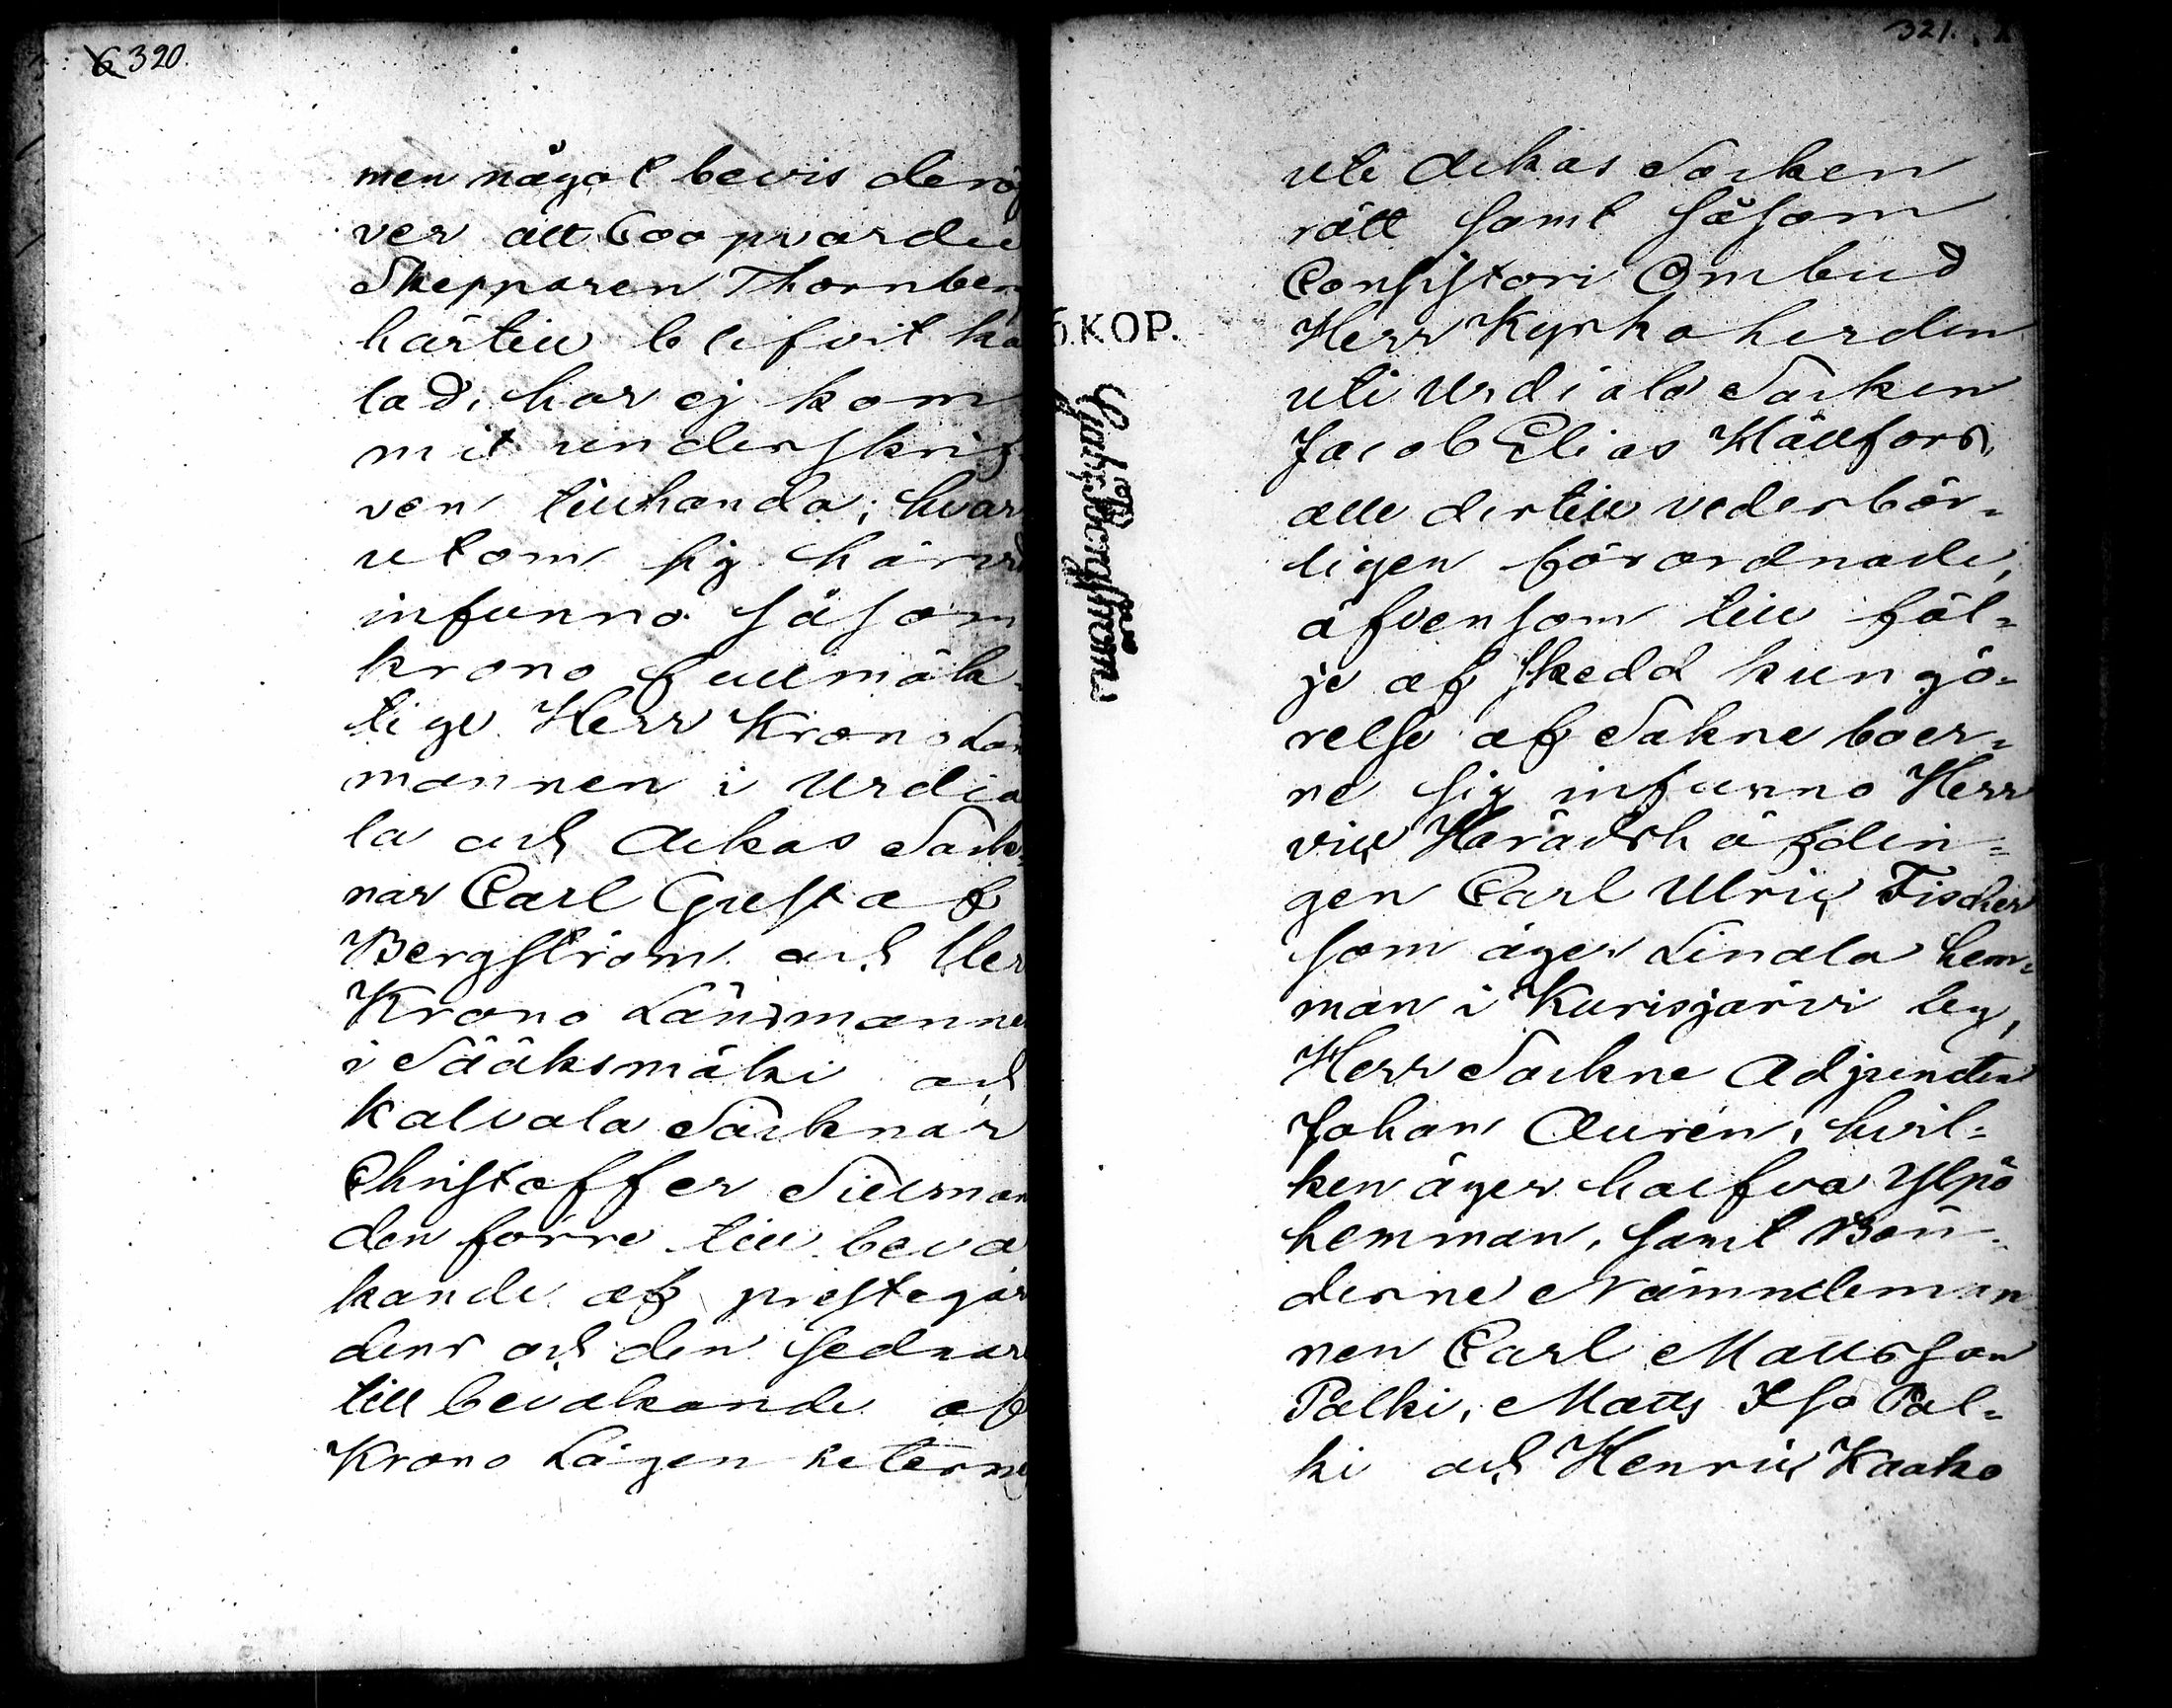 6 320.
men något bevis derö
ver att Coopvardie
Skepparen Thornberg
härtill blifvit kal
lad, har ej kom
mit underskrif
ven tillhanda; hvar
utom sig härvid
infunno såsom
krono fullmäk-
tige Herr Krono Län
mannen i Urdia
la och Ackas Sock
nar Carl Gustaf
Bergström och Her
Krono Länsmannen
i Sääksmäki och
Kalvola Socknar
Christoffer Sillman
den förre till beva
kande af prestegår
dens och den sednare
till bevakande af
Krono Lägenheterns
321.
6 KOP.
uti Ackas Socken
rätt samt såsom
Consistorii Ombud
Herr Kyrkoherden
uti Urdiala Socken
Jacob Elias Hällfors,
alle dertill vederbör-
ligen förordnade,
äfvensom till föl-
je af skedd kungö-
relse af Sakne boer-
ne sig infunno Herr
vice Häradshöfdin-
gen Carl Ulric Fischer
som äger Lindla hem-
man i Kurisjärvi by,
Herr Sockne Adjuncten
Johan Aurén, hvil-
ken äger halfva Ylpö
hemman, samt Bön-
derne Nämndeman
nen Carl Mattsson
Palki, Matts Iso Pal-
ki och Henric Kaako